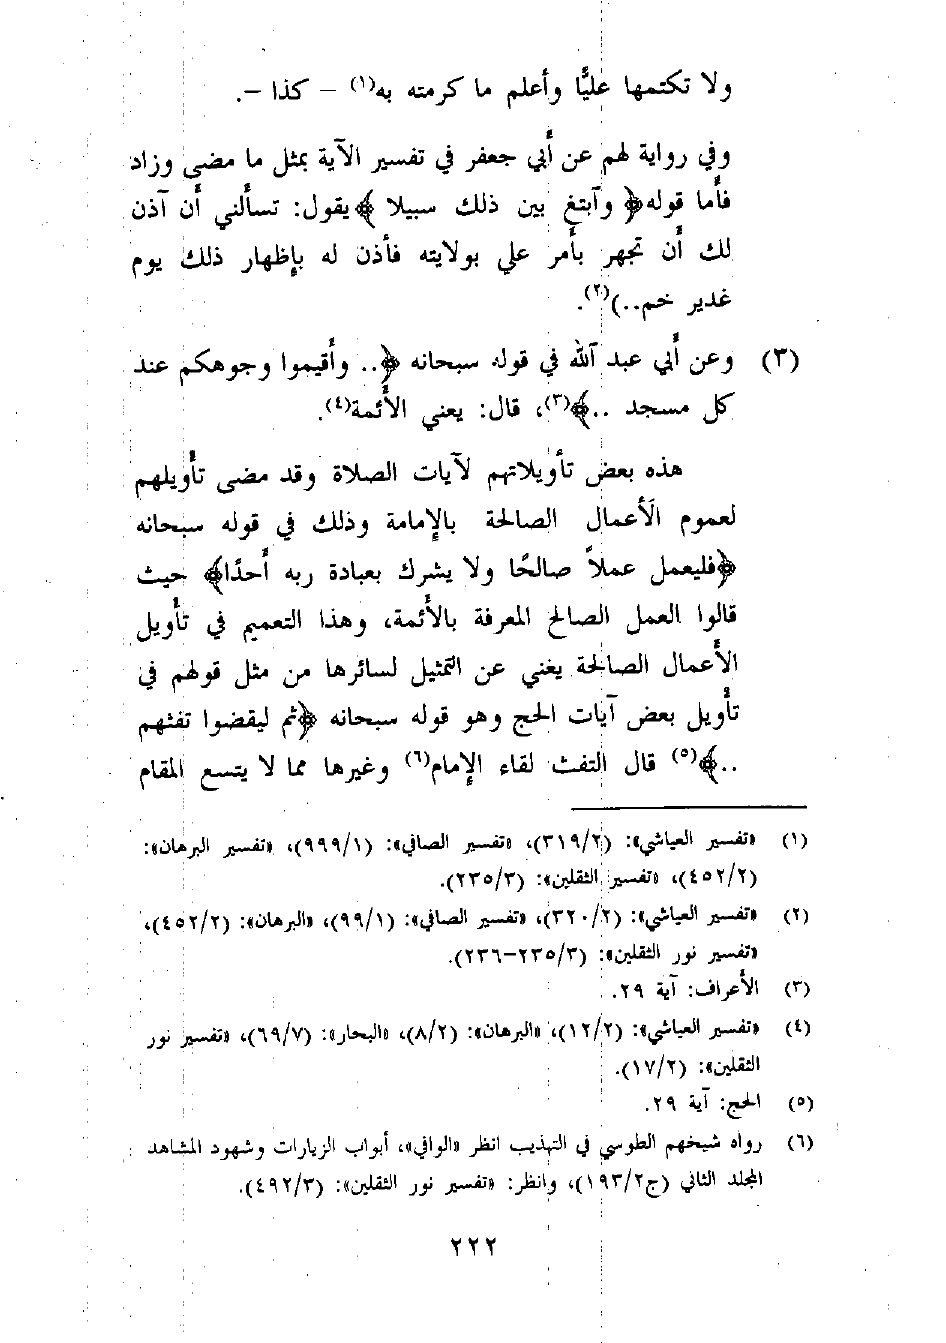 ولا تكتمها عليًّا وأعلم ما كرمته به(١) – كذا –.
وفي رواية لهم عن أبي جعفر في تفسير الآية بمثل ما مضى وزاد
فأما قوله ﴿وآبتغ بين ذلك سبيلا﴾ يقول: تسألني أن آذن
لك أن تجهر بأمر علي بولايته فأذن له بإظهار ذلك يوم
غدير خم..)(٢).
(٣) وعن أبي عبد آلله في قوله سبحانه ﴿.. وأقيموا وجوهكم عند
كل مسجد ..﴾(٣)، قال: يعني الأئمة(٤).
هذه بعض تأويلاتهم لآيات الصلاة وقد مضى تأويلهم
لعموم الأعمال الصالحة بالإمامة وذلك في قوله سبحانه
﴿فليعمل عملاً صالحًا ولا يشرك بعبادة ربه أحدًا﴾ حيث
قالوا العمل الصالح المعرفة بالأئمة، وهذا التعميم في تأويل
الأعمال الصالحة يغني عن التمثيل لسائرها من مثل قولهم في
تأويل بعض آيات الحج وهو قوله سبحانه ﴿ثم ليقضوا تفثهم
..﴾(٥) قال التفث لقاء الإمام(٦) وغيرها مما لا يتسع المقام
(١) «تفسير العياشي»: (٣١٩/٢)، «تفسير الصافي»: (٩٩٩/١)، «تفسير البرهان»:
(٤٥٢/٢)، «تفسير الثقلين»: (٢٣٥/٣).
(٢) «تفسير العياشي»: (٣٢٠/٢)، «تفسير الصافي»: (٩٩/١)، «البرهان»: (٤٥٢/٢)،
«تفسير نور الثقلين»: (٢٣٥/٣–٢٣٦).
(٣) الأعراف: آية ٢٩.
(٤) «تفسير العياشي»: (١٢/٢)، «البرهان»: (٨/٢)، «البحار»: (٦٩/٧)، «تفسير نور
الثقلين»: (١٧/٢).
(٥) الحج: آية ٢٩.
(٦) رواه شيخهم الطوسي في التهذيب انظر «الوافي»، أبواب الزيارات وشهود المشاهد
المجلد الثاني (ج١٩٣/٢)، وانظر: «تفسير نور الثقلين»: (٤٩٢/٣).
٢٢٢